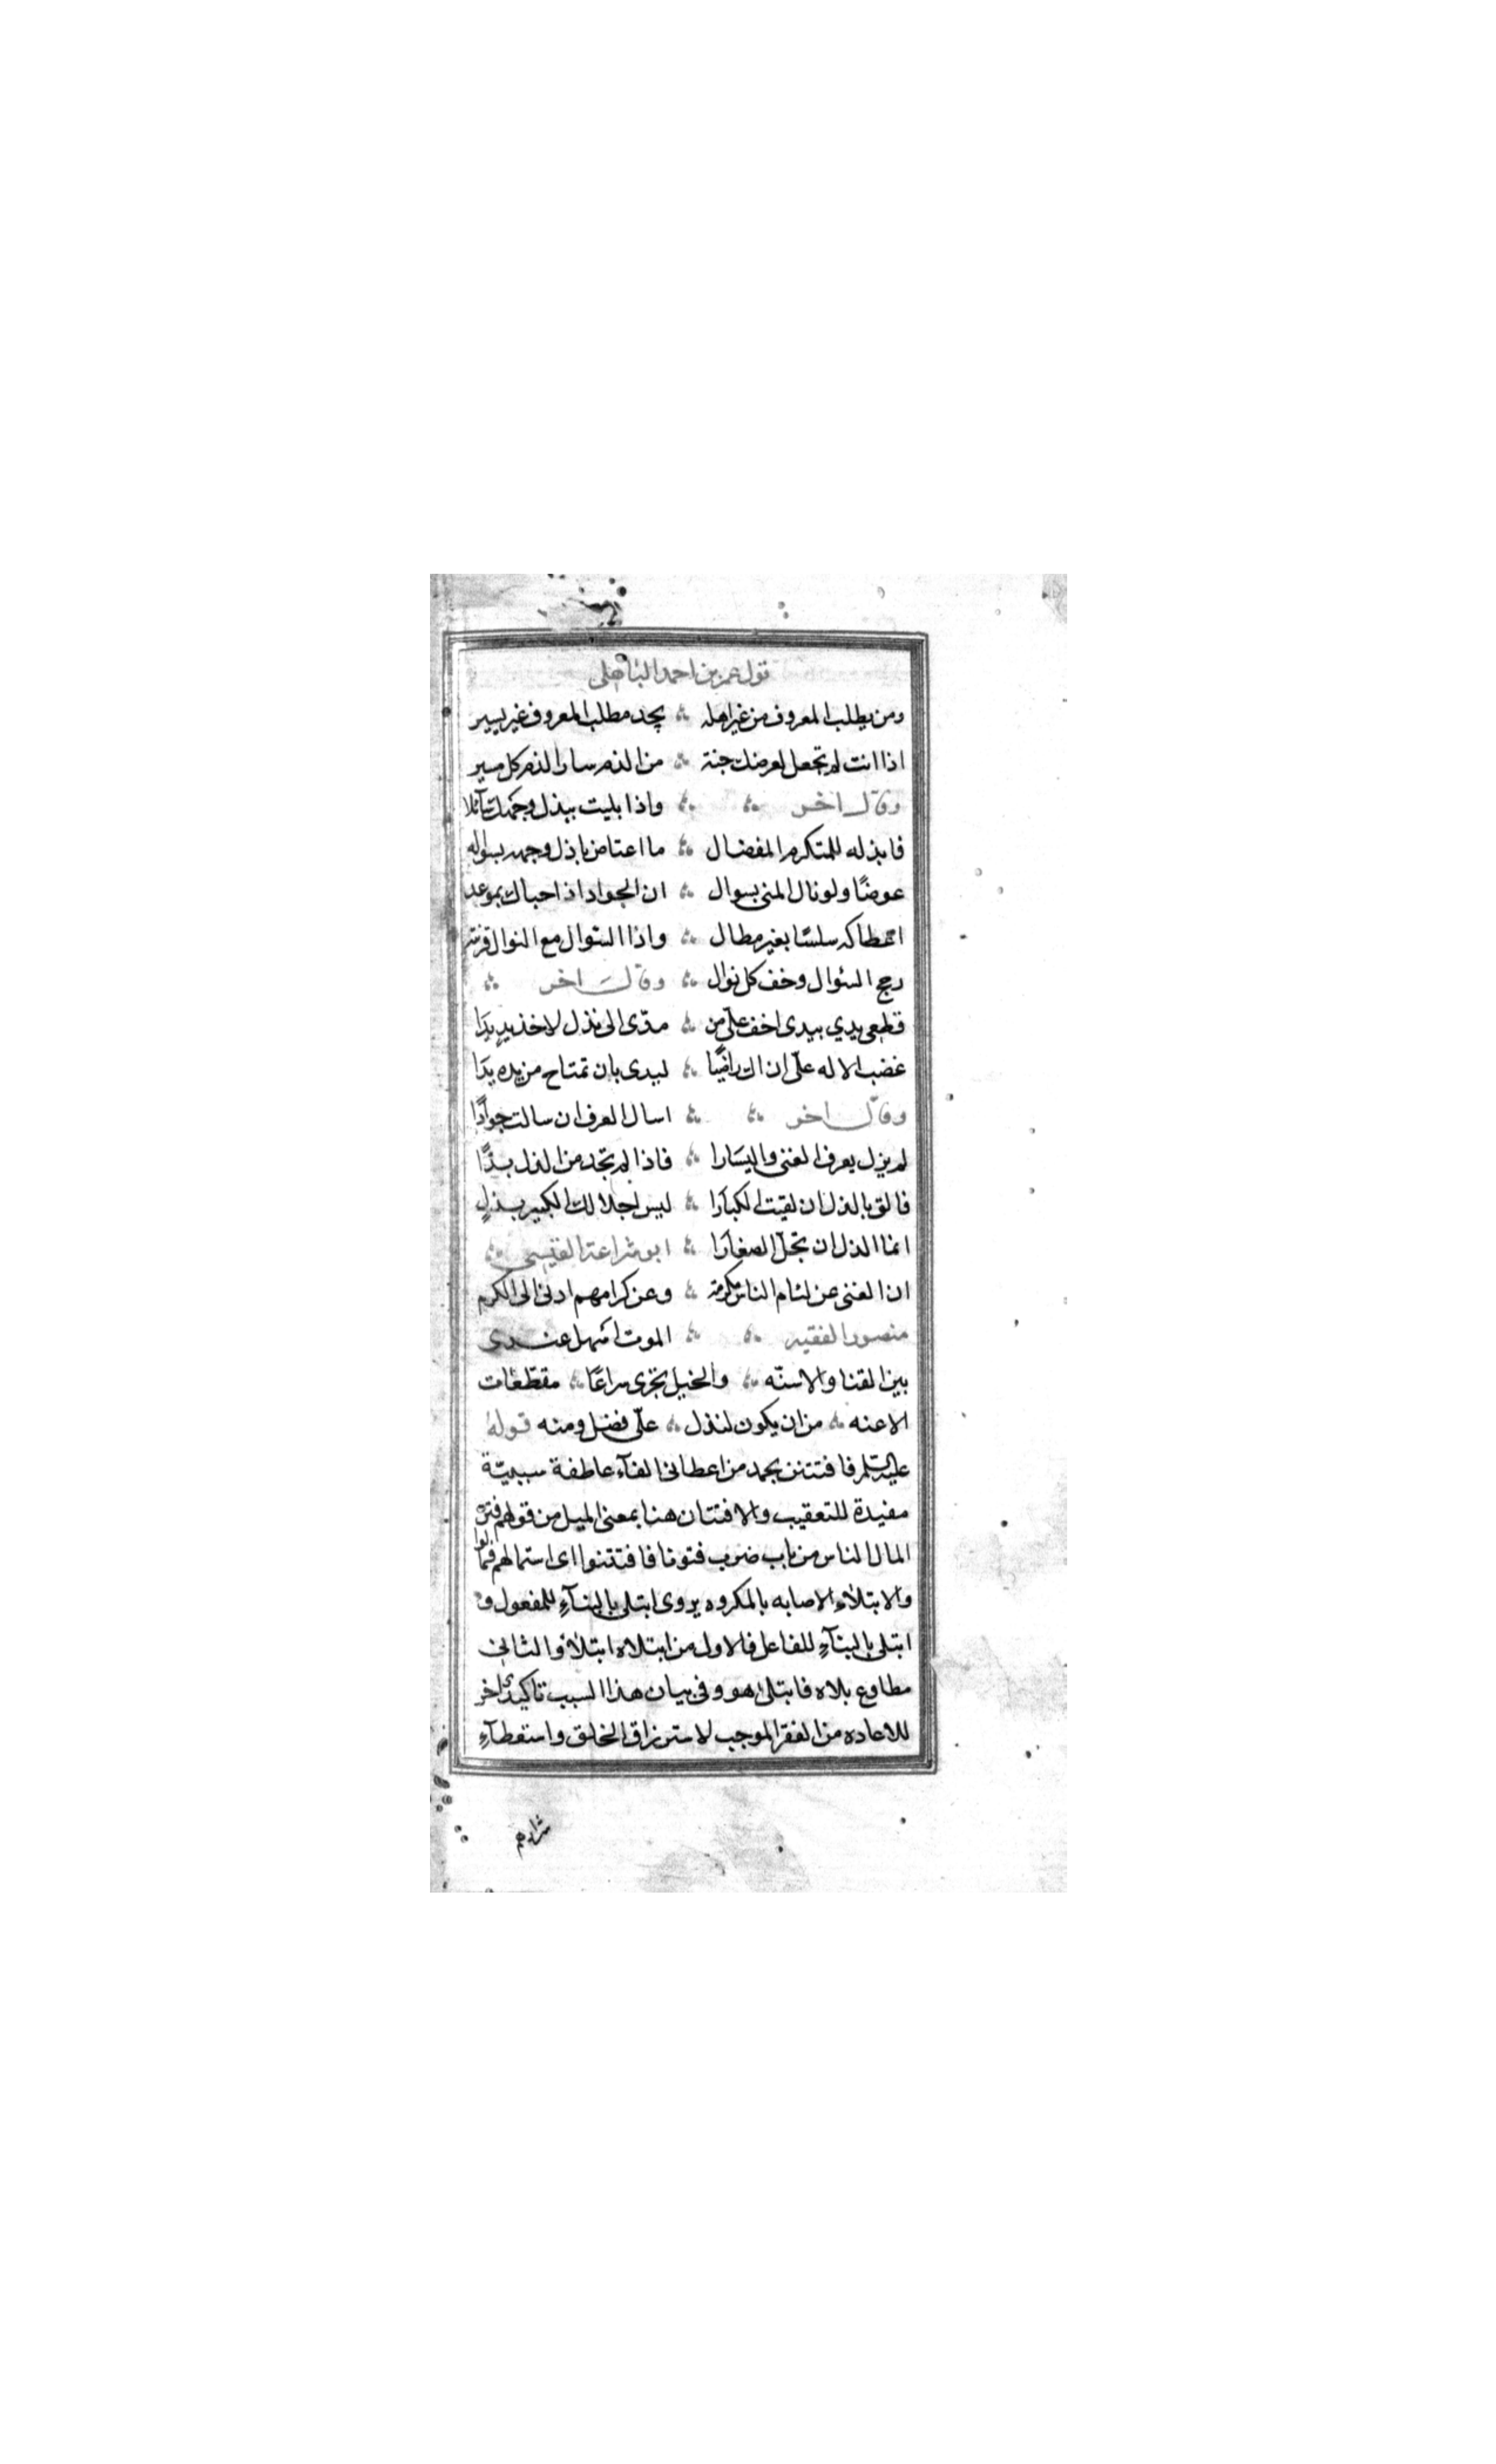 قول عمر بن احمد الباهلى
ومن يطلب المعروف من غير اهله ؞ يجد مطلب المعروف غير يسير
اذا انت لم تجعل لعرضك جنة ؞ من الذم سار الذم كل مسير
وقال اخر ؞ ؞ واذا بليت ببذل وجهك سآئلا
فابذله للمتكرم المفضال ؞ ما اعتاض باذل وجهه بسواله
عوضًا ولو نال المنى بسوال ؞ ان الجواد اذا حباك بموعد
اعطاكه سلسًا بغير مطال ؞ واذا السّوال مع النوال قرنته
رجح السئوال وخف كل نوال ؞ وقال اخر ؞
قطعى يدي بيدى اخف علىّ من ؞ مدّى الى نذل لاخذ يدٍ يدَا
غضب الاله علىّ ان اك راضيًا ؞ ليدى بان تمتاح من يده يدَا
وقال اخر ؞ ؞ اسال العرف ان سالت جوادًا
لم يزل يعرف الغنى واليسَارا ؞ فاذا لم تجد من الذل بدًّا
فالق بالذل ان لقيت الكبارَا ؞ ليس اجلالك الكبير بذلٍ
انما الذل ان تجلّ الصغارَا ؞ ابو شراعة القيسى ؞
ان الغنى عن لئام الناس مكرمة ؞ وعن كرامهم ادنى الى الكرم
منصور الفقيه ؞ ؞ الموت اسهل عندى
بين القنا والاسنّه ؞ والخيل تجرى سراعًا ؞ مقطّعَات
الاعنه ؞ من ان يكون لنذل ؞ علىّ فضل ومنه قوله
عليه السّلم فافتتن بحمد من اعطانى الفآء عاطفة سببيّة
مفيدة للتعقيب والافتتان هنا بمعنى الميل من قولهم فتن
المال الناس من باب ضرب فتونا فافتتنوا اى استمالهم فمالوا
والابتلاء الاصابه بالمكروه يروى ابتلى بالبنآءِ للمفعول و
ابتلى بالبنآءِ للفاعل فالاول من ابتلاه ابتلاءً والثانى
مطاوع بلاه فابتلى هو وفى بيان هذا السبب تاكيد اخر
للاعاده من الفقر الموجب لاسترزاق الخلق واستعطآءِ
شرارهم